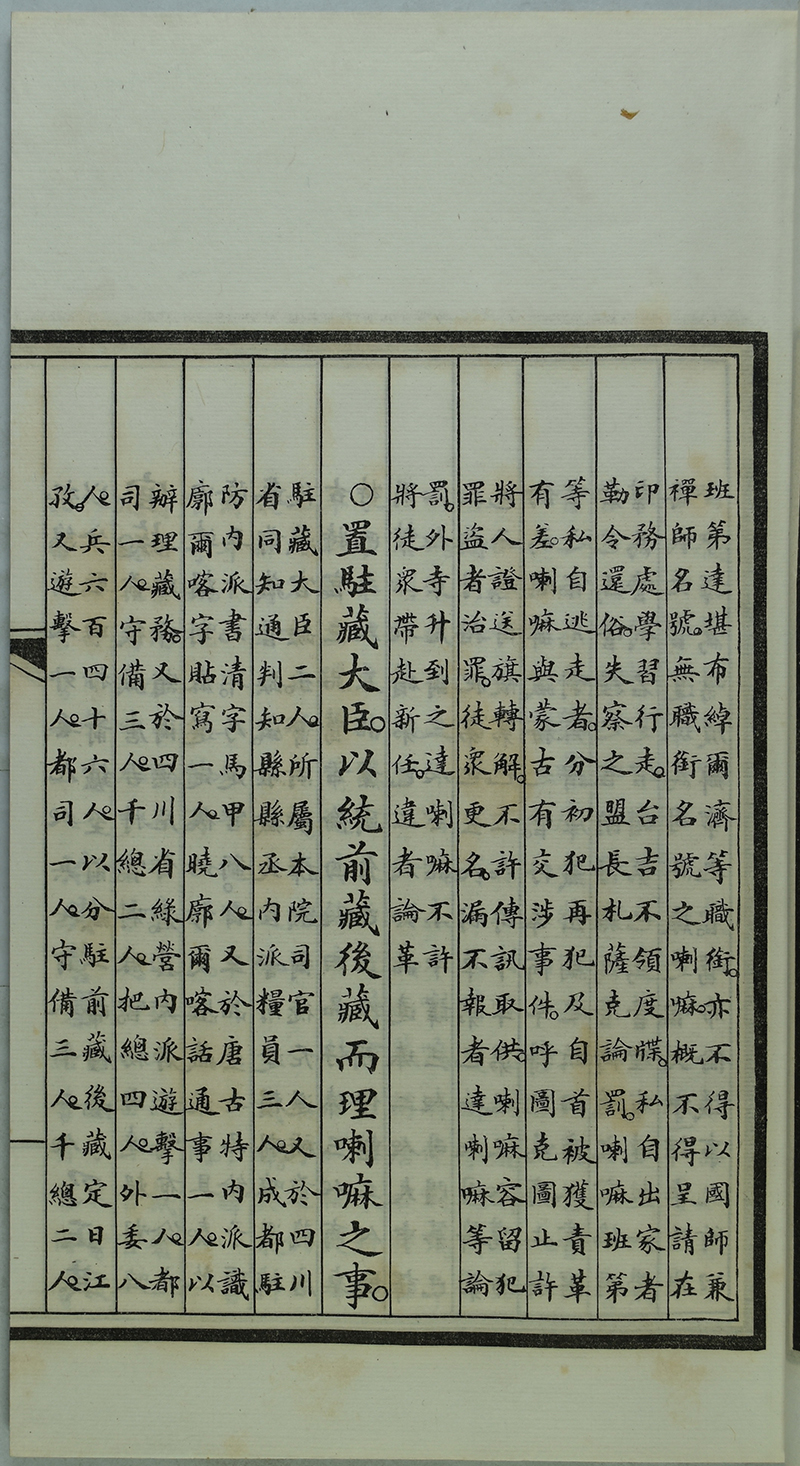 班第達堪布綽爾濟等職銜。亦不得以國師兼
禪師名號。無職銜名號之喇嘛。概不得呈請在
印務處學習行走。台吉不領度牒。私自出家者
勒令還俗。失察之盟長札薩克論罰。喇嘛班第
等私自逃走者。分初犯再犯及自首被獲責革
有差。喇嘛與蒙古有交涉事件。呼圖克圖止許
將人證送旗轉解。不許傳訊取供。喇嘛容留犯
罪盜者治罪。徒衆更名。漏不報者達喇嘛等論
罰。外寺升到之達喇嘛不許
將徒衆帶赴新任。違者論革
○置駐藏大臣。以統前藏後藏而理喇嘛之事。○
駐藏大臣二人。所屬本院司官一人又於四川
省同知通判知縣縣丞內派糧員三人。成都駐
防內派書清字馬甲八人。又於唐古特內派識
廓爾喀字貼寫一人。曉廓爾喀話通事一人。以
辦理藏務。又於四川省綠營內派遊擊一人。都
司一人。守備三人。千總二人。把總四人。外委八
人。兵六百四十六人。以分駐前藏後藏定日江
孜。又遊擊一人。都司一人。守備三人。千總二人。